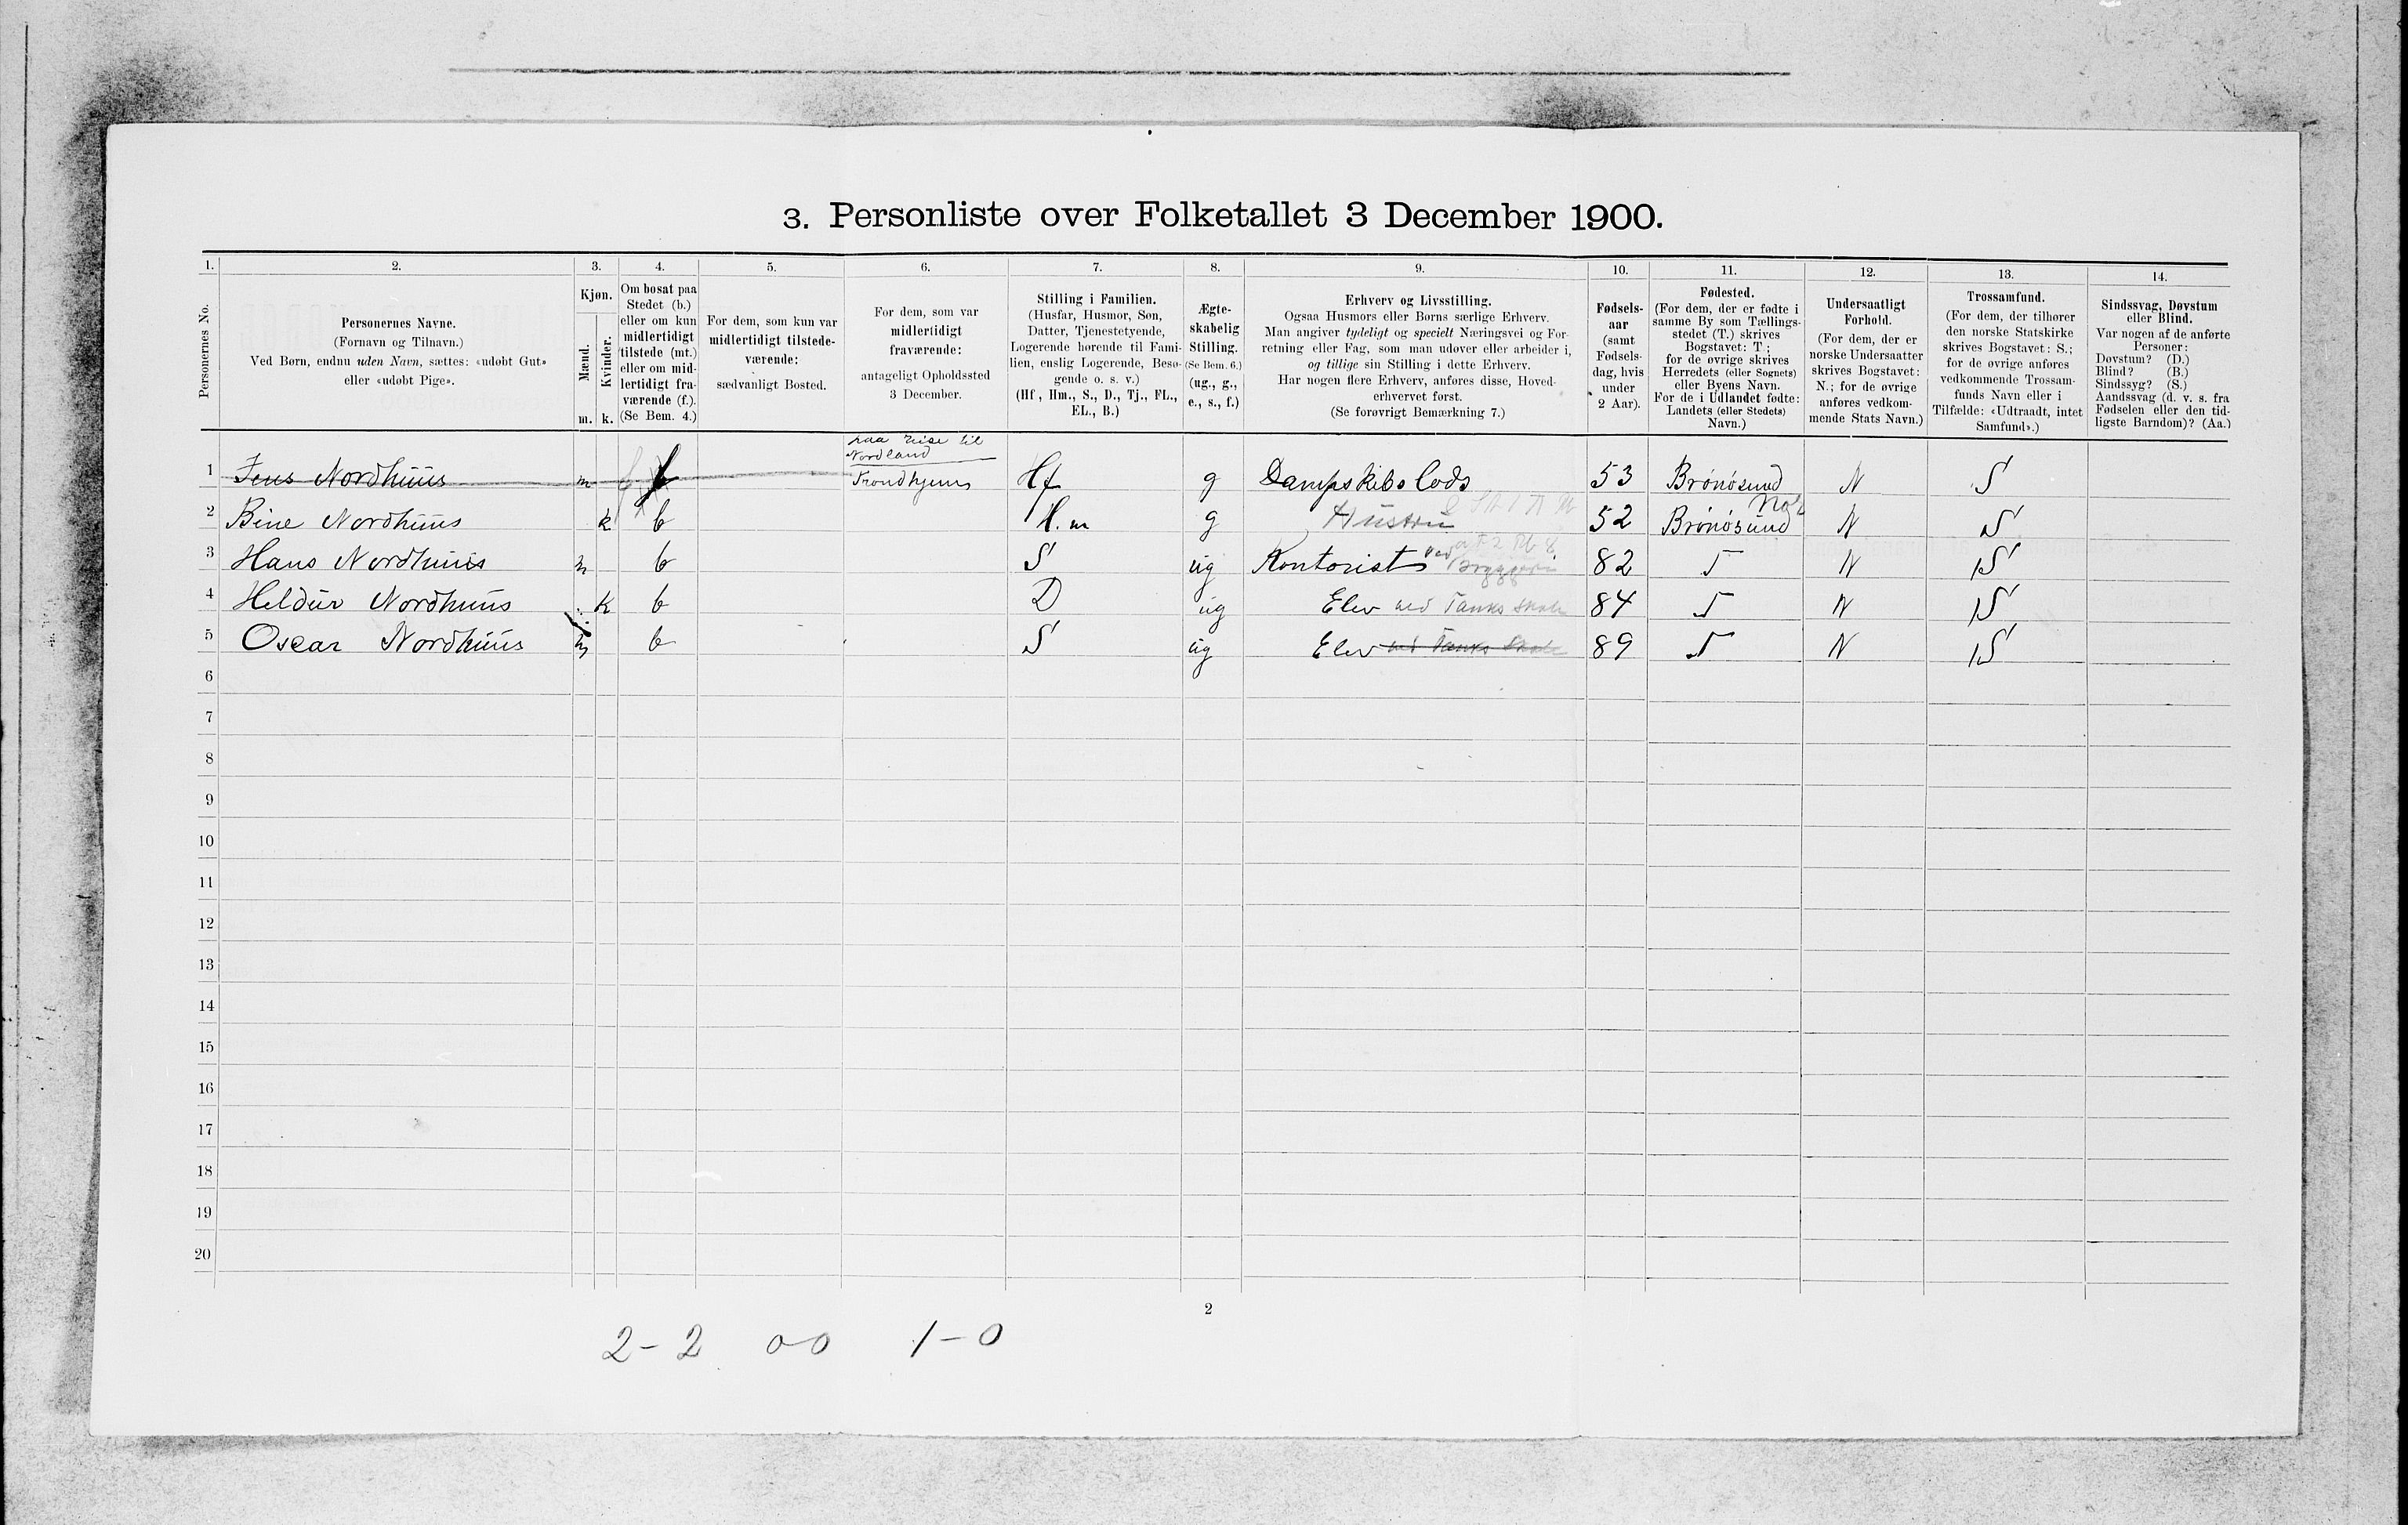 3. Personliste over Folketallet 3 December 1900.
1. 2. 3. 4. 5. 6. 7. 8. 9. 10. 11. 12. 13. 14.
Personernes No.
Personernes Navne.
(Fornavn og Tilnavn.)
Ved Børn, endnu uden Navn, sættes: «udøbt Gut»
eller «udøbt Pige».
Kjøn.
Mænd.
Kvinder.
m. k.
Om bosat paa
Stedet (b.)
eller om kun
midlertidigt
tilstede (mt.)
eller om mid-
lertidigt fra-
værende (f.).
(Se Bem. 4.)
For dem, som kun var
midlertidigt tilstede-
værende:
sædvanligt Bosted.
For dem, som var
midlertidigt
fraværende:
antageligt Opholdssted
3 December.
Stilling i Familien.
(Husfar, Husmor, Søn,
Datter, Tjenestetyende,
Logerende hørende til Fami-
lien, enslig Logerende, Besø-
gende o. s. v.)
(Hf, Hm., S., D., Tj., FL.,
EL., B.)
Ægte-
skabelig
Stilling.
(Se Bem. 6.)
(ug., g.,
e., s., f.)
Erhverv og Livsstilling.
Ogsaa Husmors eller Børns særlige Erhverv.
Man angiver tydeligt og specielt Næringsvei og For-
retning eller Fag, som man udøver eller arbeider i,
og tillige sin Stilling i dette Erhverv.
Har nogen flere Erhverv, anføres disse, Hoved-
erhvervet først.
(Se forøvrigt Bemærkning 7.)
Fødsels-
aar
(samt
Fødsels-
dag, hvis
under
2 Aar).
Fødested.
(For dem, der er fødte i
samme By som Tællings-
stedet (T.) skrives
Bogstavet: T;
for de øvrige skrives
Herredets (eller Sognets)
eller Byens Navn.
For de i Udlandet fødte:
Landets (eller Stedets)
Navn.)
Undersaatligt
Forhold.
(For dem, der er
norske Undersaatter
skrives Bogstavet:
N.; for de øvrige
anføres vedkom-
mende Stats Navn.)
Trossamfund.
(For dem, der tilhører
den norske Statskirke
skrives Bogstavet: S.;
for de øvrige anføres
vedkommende Trossam-
funds Navn eller i
Tilfælde: «Udtraadt, intet
Samfund».)
Sindssvag, Døvstum
eller Blind.
Var nogen af de anførte
Personer:
Døvstum? (D.)
Blind? (B.)
Sindssyg? (S.)
Aandssvag (d. v. s. fra
Fødselen eller den tid-
ligste Barndom)? (Aa.)
paa reise til
Nordland
1 Jens Nordhuus m f Trondhjem Hf g Dampskibs lods 53 Brönösund N S
2 Bine Nordhuus k b H.m g Hustru 52 Brönösund N S
3 Hans Nordhuus m b S ug Kontorist ved Bryggeri 82 T N S
4 Heldur Nordhuus k b D ug Elev ved Tanks skole 84 T N S
5 Oscar Nordhuus m b S ug Elev ved Tanks Skole 89 T N S
6
7
8
9
10
11
12
13
14
15
16
17
18
19
20
2
2-2 0-0 1-0